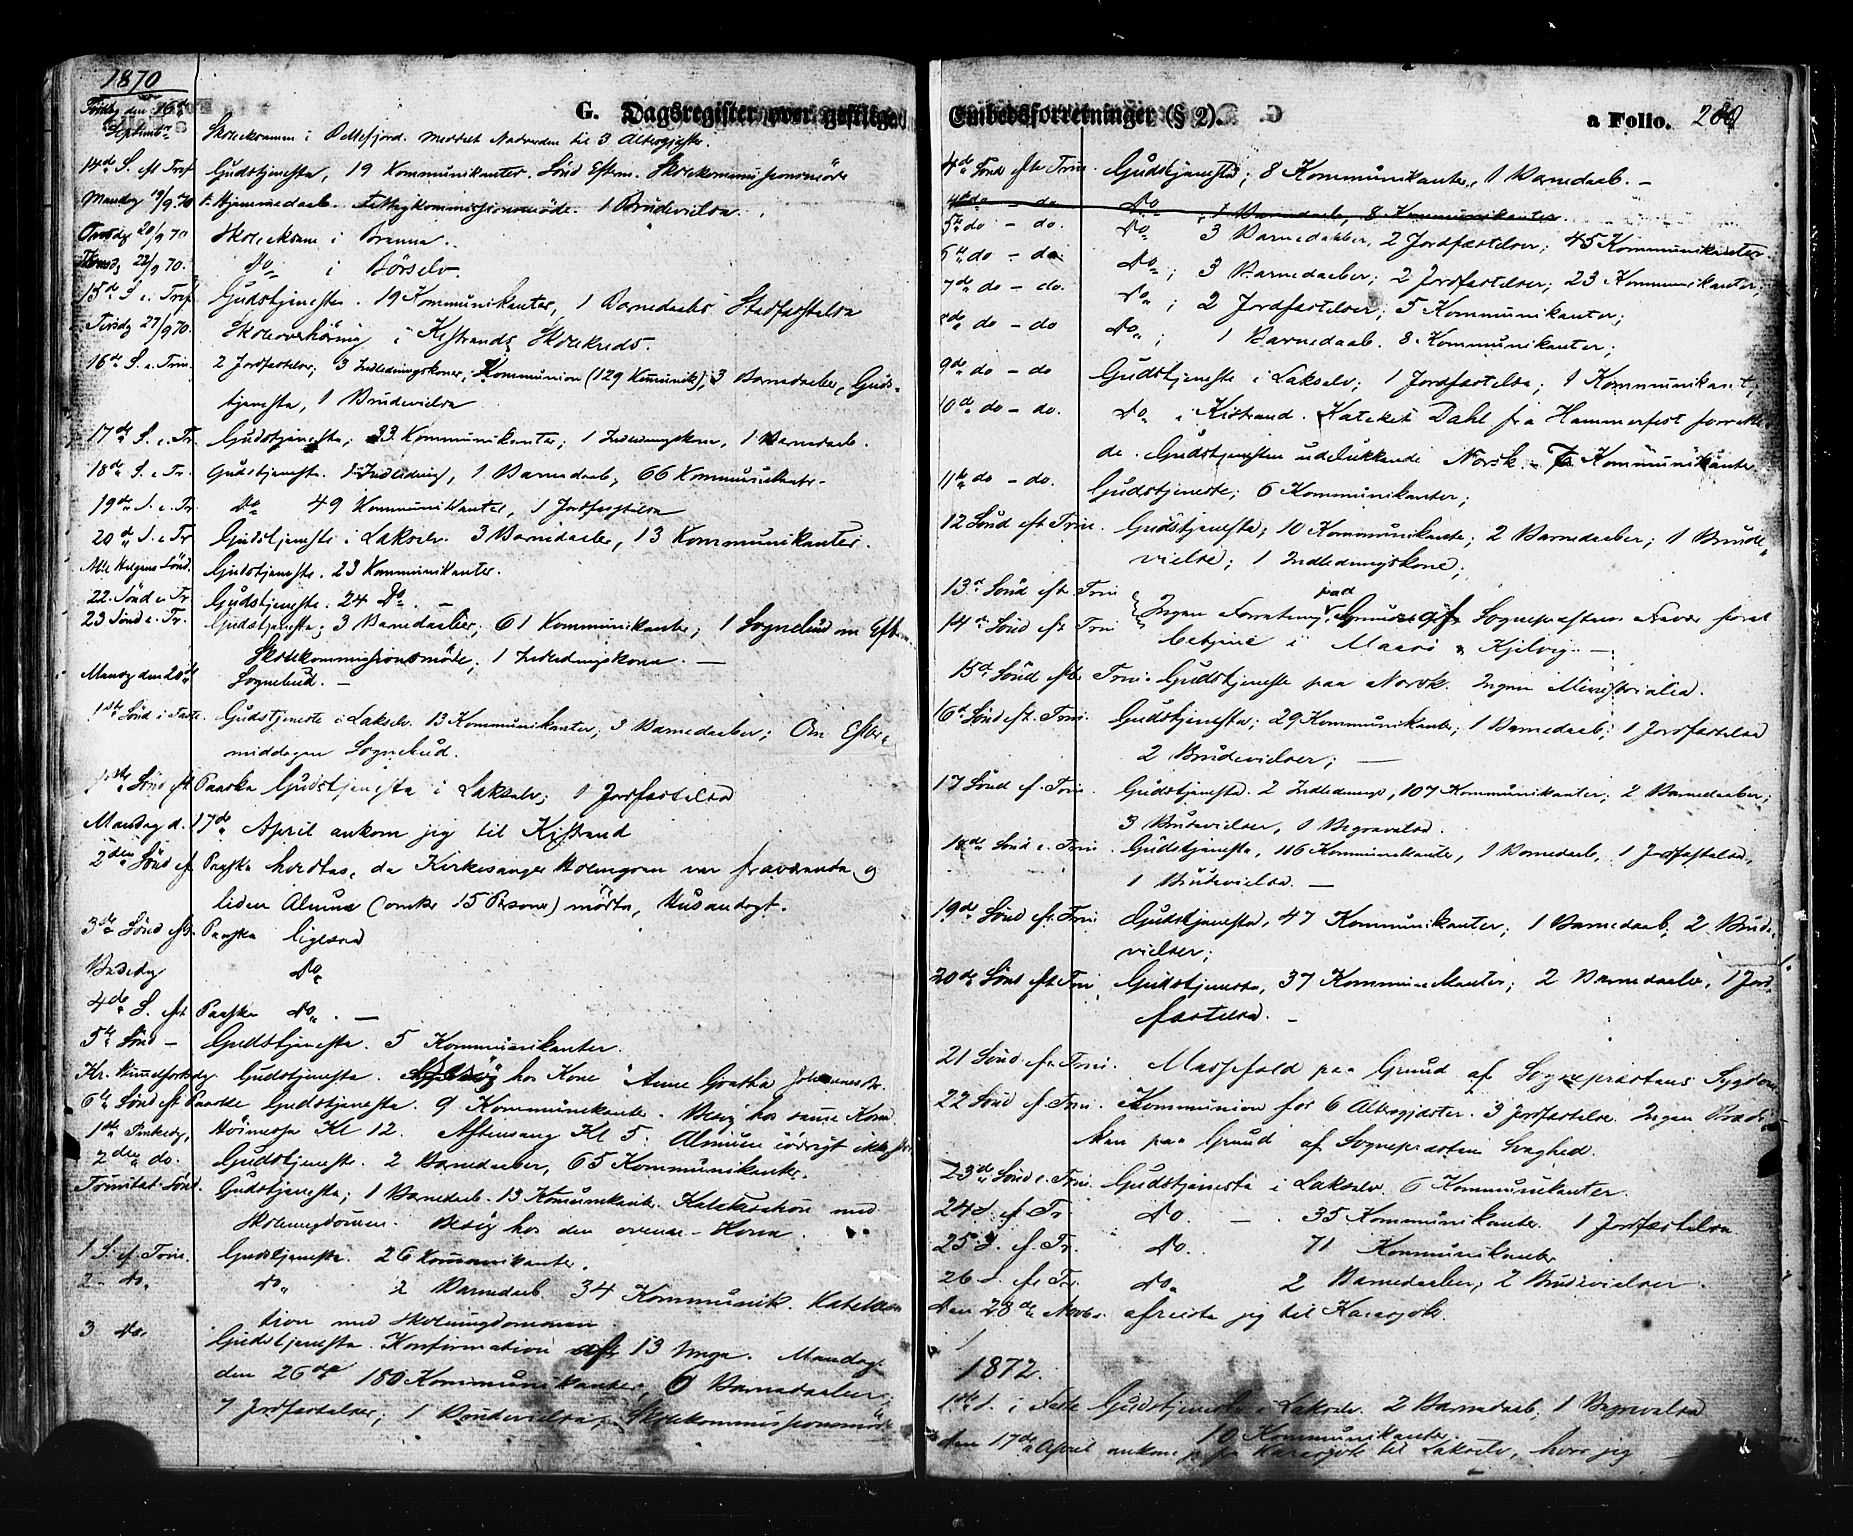 1870
G. Dagsregister over geistlige
Tirsdag den 16de
September Skoleexamen i Pollefjord. Meddelt Nadverden til 3 Altergjester.
14de S. eft Tref Gudstjenesta, 19 Kommunikanter. Sönd Efterm. Skolekommissionsmöde
Mandag 19/9 70 Hjemmedaab. Fattigkommissionsmöde. 1 Brudevielse.
Onsdag 20/9 70 Skoleexamen i Brenna.
22/9 70. Do i Börselv.
15de S. e. Tref. Gudstjenesta. 19 Kommunikanter, 1 Barnedaab
Tirsdg 27/9 70. Skoleoverhöring i Kistrands Skolekreds.
16de S. e. Trin. 2 Jordfæstelser, 3 Indledningskoner, Kommunion (129 Kmunik), 3 Barnedaaber, Guds-
tjenesta, 1 Brudevielse
17de S. e. Tr. Gudstjenesta; 33 Kommunikanter; 1 Indledningskone, 1 Barnedaab.
18de S. e. Tr. Gudstjenesta. Indledning, 1 Barnedaab, 66 Kommunikanter.
19de S. e. Tr. Do 49 Kommunikanter, 1 Jordfæstelse
20de S. e Tr Gudstjeneste i Lakselv. 3 Barnedaaber, 13 Kommunikanter.
Alle Helgens Sönd. Gudstjeneste. 23 Kommunikanter.
22. Sönd e. Tr Gudstjeneste. 24 Do. —
23 Sönd e. Tr. Gudstjenesta; 3 Barnedaaber; 61 Kommunikanter; 1 Sognebud om Eft
Skolekommissionsmöde; 1 Indledningskone. —
Mandg den 28de Sognebud. —
1ste Sönd i Faste. Gudstjeneste i Lakselv. 13 Kommunikanter; 3 Barnedaaber; Om Efter-
middagen Sognebud.
1ste Sönd eft Paaske Gudstjenesta i Lakselv; 1 Jordfæstelse
Mandag d. 17de April ankom jeg til Kistrand
2den Sönd ef Paaske holdtes, da Kirkesanger Holmgren var fraværende og
liden Almue (omkr 15 Personer) mödte, Husandagt.
3die Sönd eft. Paaske ligesaa
Bededg Do
4de S. eft Paaske Do. —
5te Sönd — Gudstjenesta. 5 Kommunikanter.
Kr. Himmelfartsdg. Gudstjenesta. Besög hos Kone Anne Gretha Johannesdr.
6te Sönd eft Paaske Gudstjenesta. 9 Kommunikanter. Besög hos samme Kone
1ste Pinkedg. Höimesse Kl 12. Aftensang Kl 5. Almuen iövrigt ikke
2den do. Gudstjeneste. 2 Barnedaaber, 65 Kommunikanter.
Trinitat. Sönd. Gudstjenesta; 1 Barnedaab. 13 Komunikante. Katekisation med
Skoleungdommen. Besög hos den ovenn. Kone.
1 S. ef. Trin. Gudstjenesta. 26 Kommunikanter.
2 Do. Do. 2 Barnedaab. 34 Kommunik. Katekisa-
tion med Skoleungdommen.
3 Do. Gudstjenesta. Konfirmation af 13 Unge. Mandag
den 26de 180 Kommunikanter, 6 Barnedaaber,
7 Jordfæstelser; 1 Brudevielse, Skolekommissionsmöde
Embedsforretninger (§ 2).
a Folio. 280
4de Sönd efte Trin. Gudstjenesta; 8 Kommunikanter, 1 Barnedaab. —
4de do — do Do, 1 Barnedaab, 8 Kommunikanter.
5te do — do. Do. 3 Barnedaaber, 2 Jordfæstelser; 45 Kommunikanter
6te do — do. Do; 3 Barnedaaber; 2 Jordfæstelser; 23 Kommunikanter;
7de do — do. Do; 2 Jordfæstelser; 5 Kommunikanter;
8de do — do Do; 1 Barnedaab. 8 Kommunikanter;
9de do — do Gudstjeneste i Lakselv; 1 Jordfæstelse; 1 Kommunikant,
10de do — do. Do i Kistrand. Kateket Dahl fra Hammerfest forrette-
de. Gudstjenesten udelukkende Norsk. 7 Kommunikanter
11te do — do. Gudstjeneste; 6 Kommunikanter;
12 Sönd eft Trin. Gudstjenesta; 10 Kommunikanter; 2 Barnedaaber; 1 Brude-
vielse; 1 Indledningskone;
13de Sönd eft Trin
14de Sönd ef Trin Ingen Forretning paa Grund af Sognepræstens Fravær for at
betjene i Maasö & Kjelvig. —
15de Sönd eft. Trin. Gudstjeneste paa Norsk. Ingen Ministrialia.
16de Sönd eft. Trin. Gudstjenesta; 29 Kommunikanter; 1 Barnedaab; 1 Jordfæstelse
2 Brudevielser; —
17 Sönd ef Trin. Gudstjenesta. 2 Indledninge, 107 Kommunikanter; 2 Barnedaaber;
3 Brudevielser, 1 Begravelse.
18de Sönd e. Trin. Gudstjenesta, 116 Kommunikanter, 1 Barnedaab, 1 Jordfæstelse,
1 Brudevielse. —
19de Sönd eft Trin Gudstjenesta, 47 Kommunikanter; 1 Barnedaab; 2 Brude-
vielser;
20de Sönd eft Trin Gudstjeneste, 37 Kommunikanter; 2 Barnedaabe, 1 Jord-
fæstelse. —
21 Sönd ef Trin. Messefald paa Grund af Sognepræstens Sygdom
22 Sönd ef Trin. Kommunion for 6 Altergjæster. 3 Jordfæstelse. Ingen Præde-
ken paa Grund af Sognepræstens Svaghed.
23de Sönd e. Trin. Gudstjenesta i Lakselv. 6 Kommunikanter.
24 S. ef Tr Do. — 35 Kommunikanter. 1 Jordfæstelse
25 S. ef. Tr. Do. 71 Kommunikanter
26 S. ef Tr. Do 2 Barnedaaber; 2 Brudevielser.
Den 28de Novbr. afreiste jeg til Karasjok.
1872.
1ste S. i Faste Gudstjeneste i Lakselv. 2 Barnedaab; 1 Begravelse
10 Kommunikanter.
Den 17de April ankom jeg fra Karasjok til Lakselv, hvor jeg